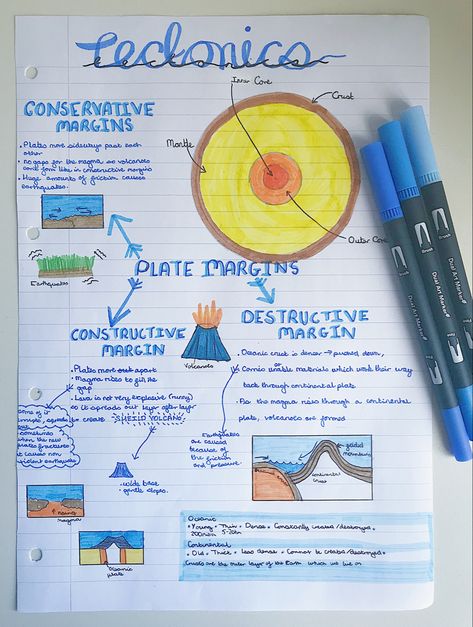 Tectonics
tectonics
Inner Core
Crust
CONSERVATIVE
MARGINS
Mantle
• Plates move sideways past each
other
• no gaps for the magma so volcanoes
cant form like in constructive margins
• Huge amounts of friction causes
earthquakes.
Outer Core
Earthquakes
PLATE MARGINS
CONSTRUCTIVE
MARGIN
Volcanoes
DESTRUCTIVE
MARGIN
• Plates move apart
• Magma rises to fill the
gap
• Lava is not very explosive (runny)
so it spreads out layer after layer
to create SHEILD VOLCANO
• Oceanic crust is denser → pushed down,
• Comic unable materials which work their way
back through continental plate.
• As the magma rises through a continental
plate, volcanoes are formed
Some of it
sometimes
when the new
plate fractures
it causes non
violent earthquake
• wide base
• gentle slopes.
Earthquakes
are caused
because of
the friction
and pressure.
folded
mountains
continental
crust
rising
magma
oceanic
plate
Oceanic
• Young • Thin • Dense • Constantly created/destroyed
200myrs 5-10km
Continental
• Old • Thick • Less dense • Cannot be created/destroyed
Crusts are the outer layer of the Earth which we live on
Brush
Dual Art Marker
Brush
Dual Art Marker
Brush
Dual Art Marker